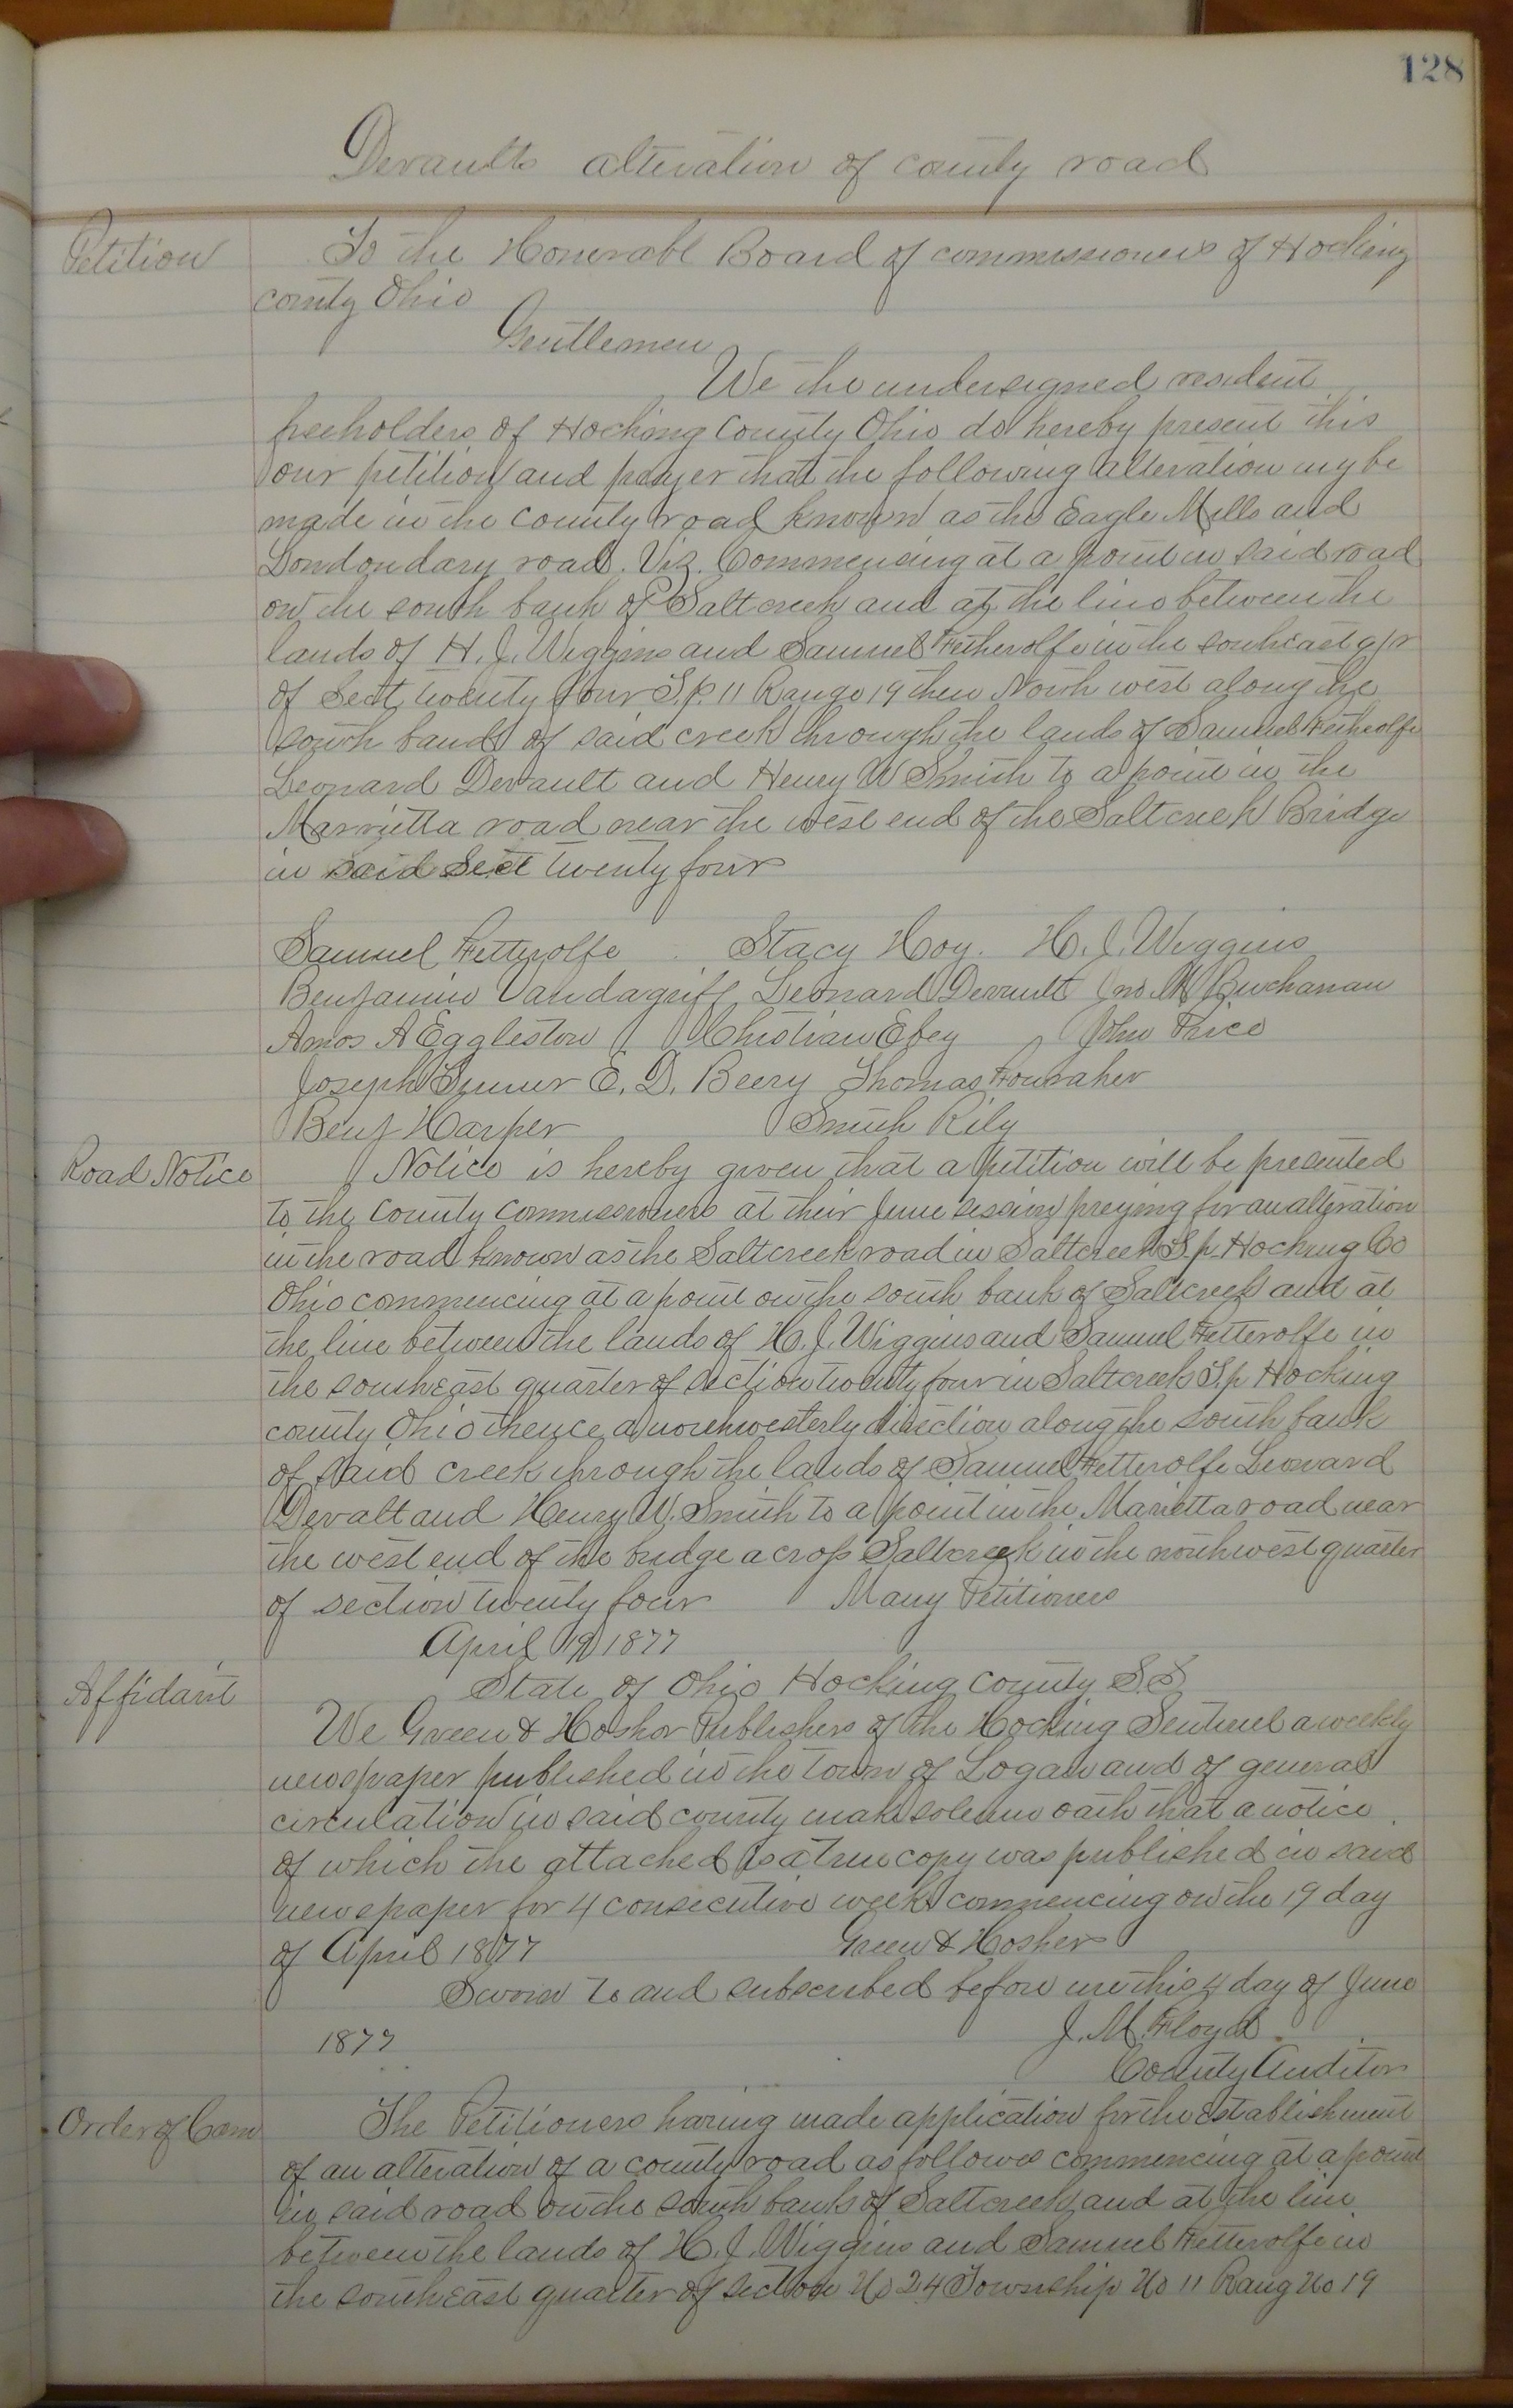 128
Devaults alteration of county road
Petition
To the Honorabl Board of commissioners of Hocking
county Ohio
Gentlemen
We the undersigned resident
freeholders of Hocking County Ohio do hereby present this
our petition and prayer that the following alteration my be
made in the County road known as the Eagle Mills and
Londondary road. Viz. Commencing at a point in said road
on the south bank of Saltcreek and at the line between the
lands of H. J. Wiggins and Samuel Fetherolfe in the southeast qr
of Sect twenty four T.p. 11 Range 19 then North west along the
south bank of said creek through the lands of Samuel Fetherolfe
Leonard Devault and Henry W Smith to a point in the
Marrietta road near the west end of the Saltcreek Bridge
in said Sect twenty four
Samuel Fetterolfe Stacy Hoy. H. J. Wiggins
Benjamin Vandagriff Leonard Devault Jno M Buchanan
Amos A Eggleston Christian Ebey John Price
Joseph E. D. Beery Thomas
Benj Harper Smith Rily
Road Notice
Notice is hereby given that a petition will be presented
to the County Commissioners at their June session preying for an altration
in the road known as the Saltcreek road in Saltcreek T.p. Hocking Co
Ohio commencing at a point on the south bank of Saltcreek and at
the line between the lands of H. J. Wiggins and Samuel Fetterolfe in
the southeast quarter of section twenty four in Saltcreek T.p Hocking
county Ohio thence a northwesterly direction along the south bank
of said creek through the lands of Samuel Fetterolfe Leonard
Devalt and Henry W. Smith to a point in the Marietta road near
the west end of the bridge across Saltcreek in the northwest quarter
of section twenty four Many Petitioners
April 19 1877
Affidavit
State of Ohio Hocking County S.S
We Green & Hoshor Publishers of the Hocking Sentinel a weekly
newspaper published in the town of Logan and of general
circulation in said county make solemn oath that a notice
of which the attached is a true copy was published in said
newspaper for 4 consecutive weeks commencing on the 19 day
of April 1877 Green & Hosher
Sworn to and subscribed before me this 4 day of June
1877 J. M. Floyd
County Auditor
Order of Com
The Petitioners having made application for the establishment
of an alteration of a county road as follows commencing at a point
in said road on the south bank of Saltcreek and at the line
between the lands of H. J. Wiggins and Samuel Fetterolfe in
the southeast quarter of section No 24 Township No 11 Rang No 19